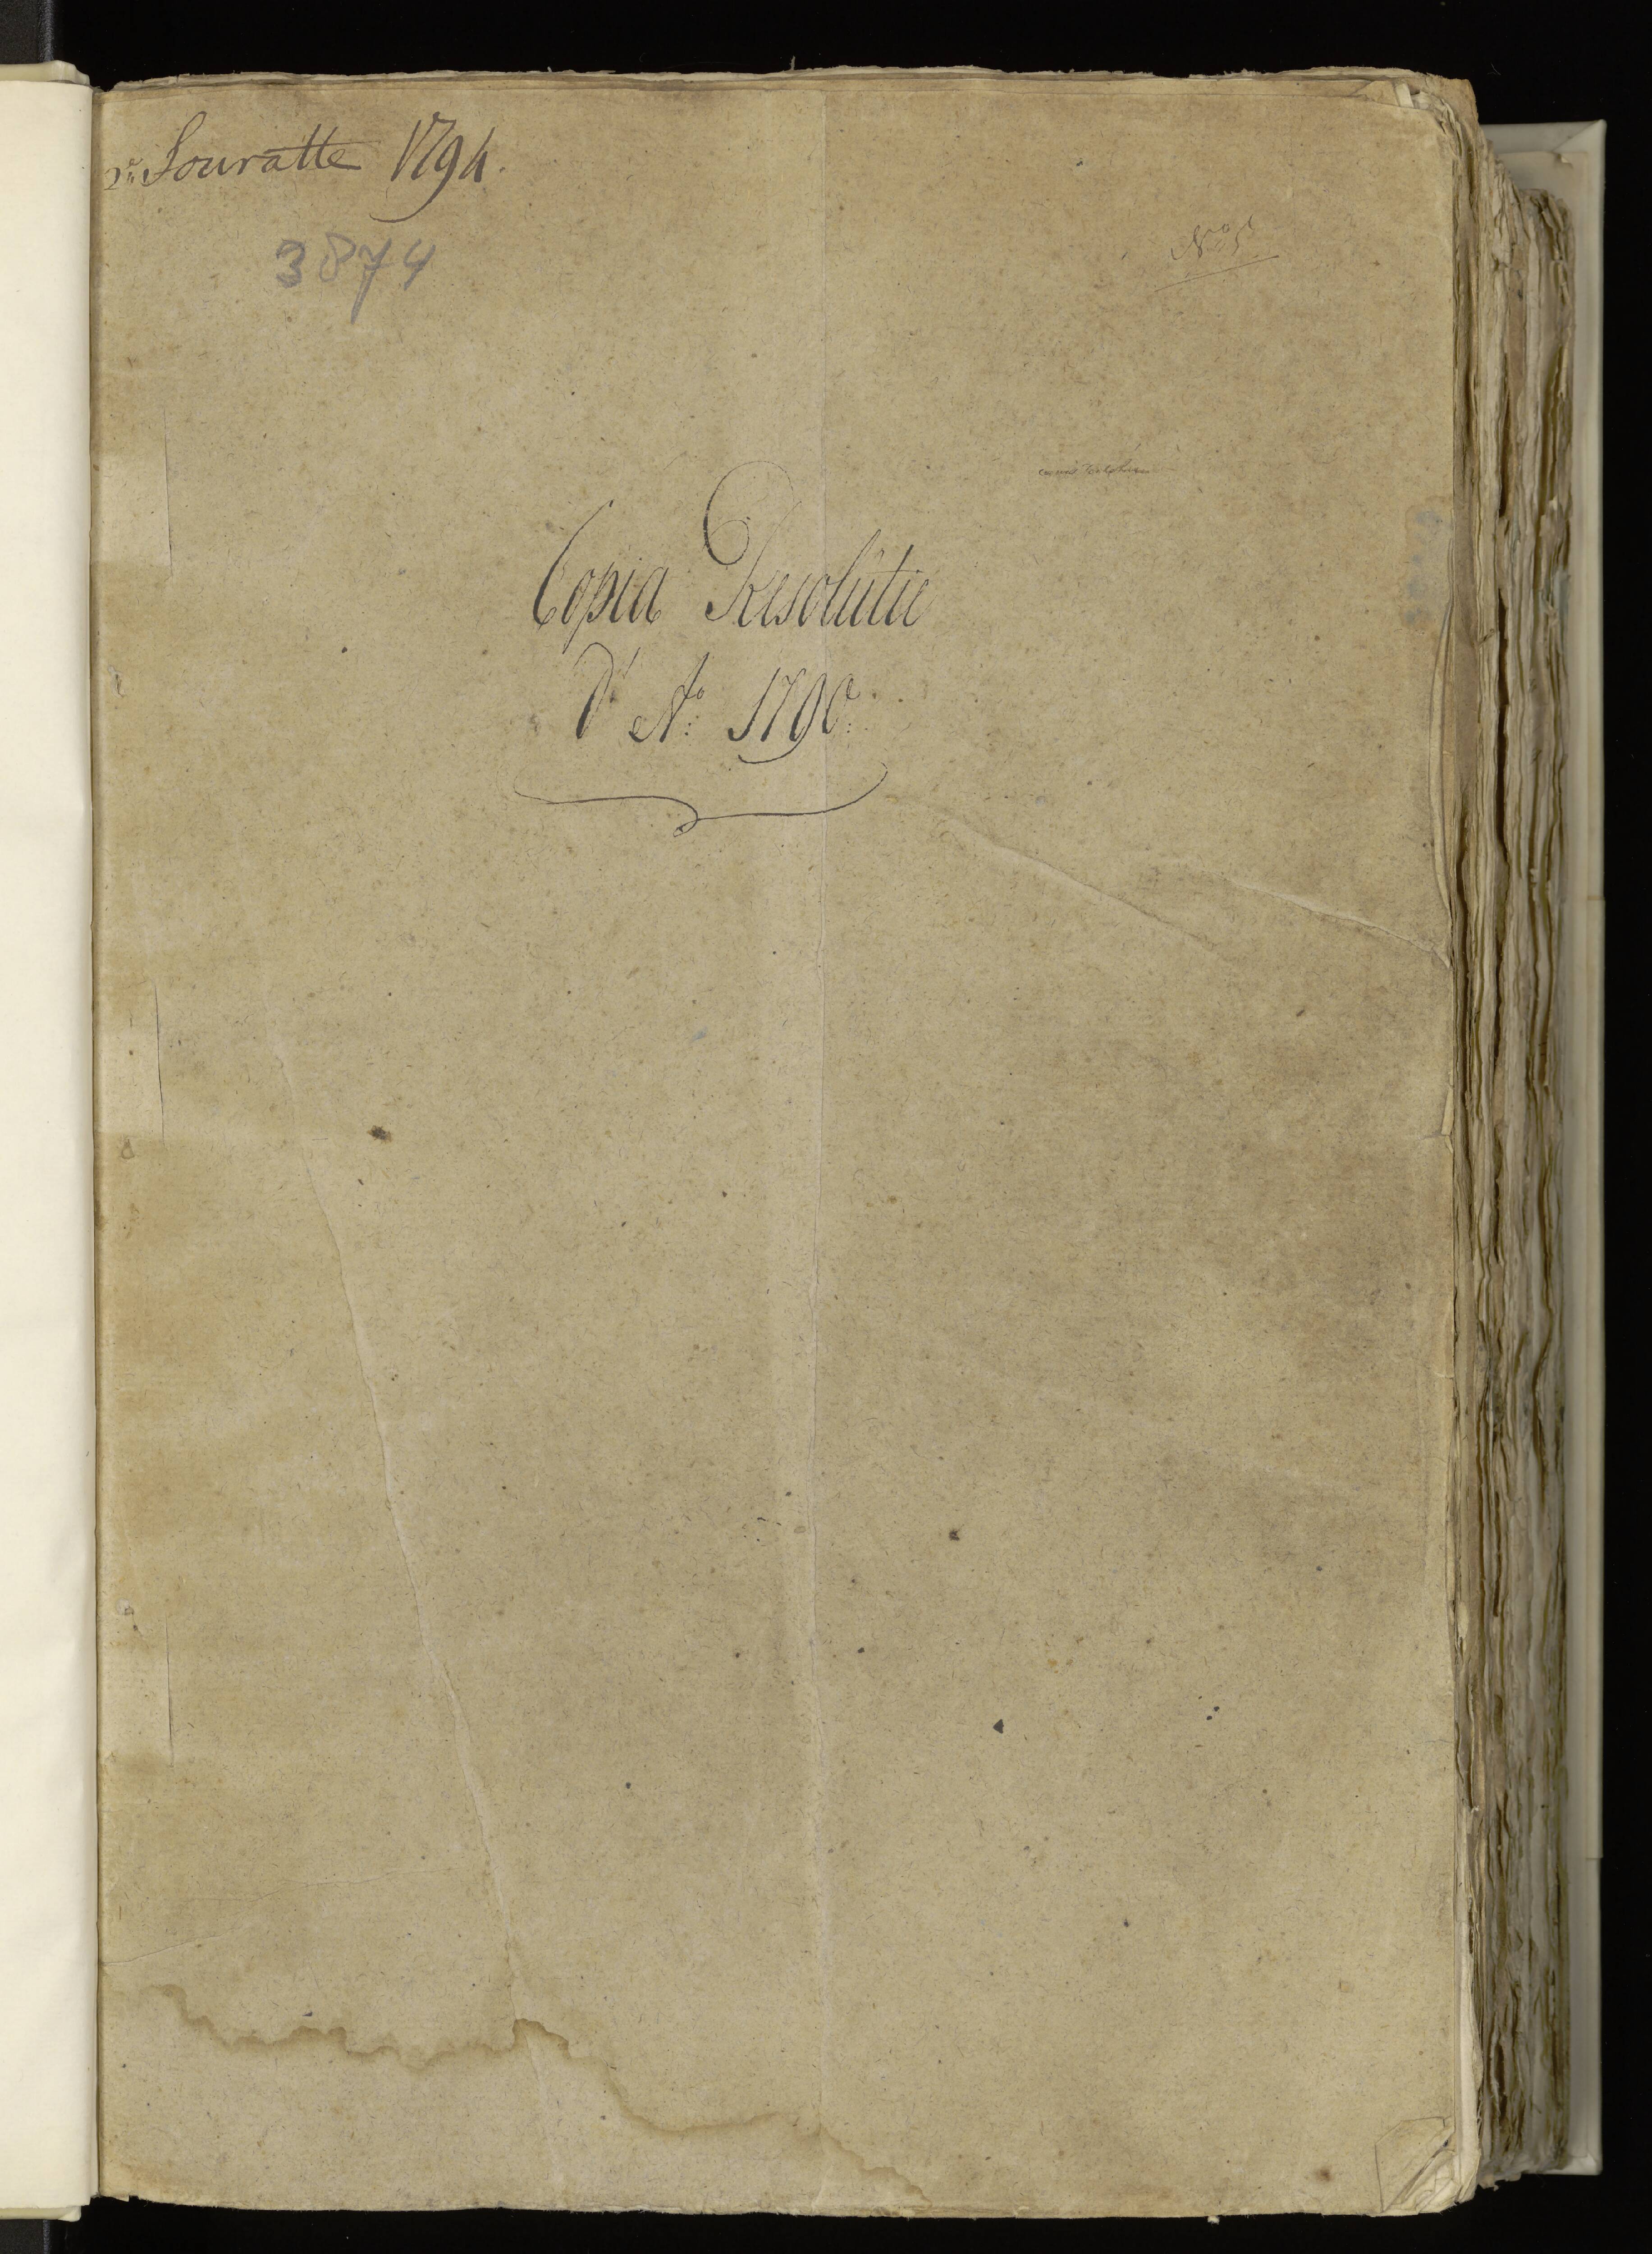 Souratte 1794.
3874
No 5
Copia Resolutie
d' Ao: 1790: